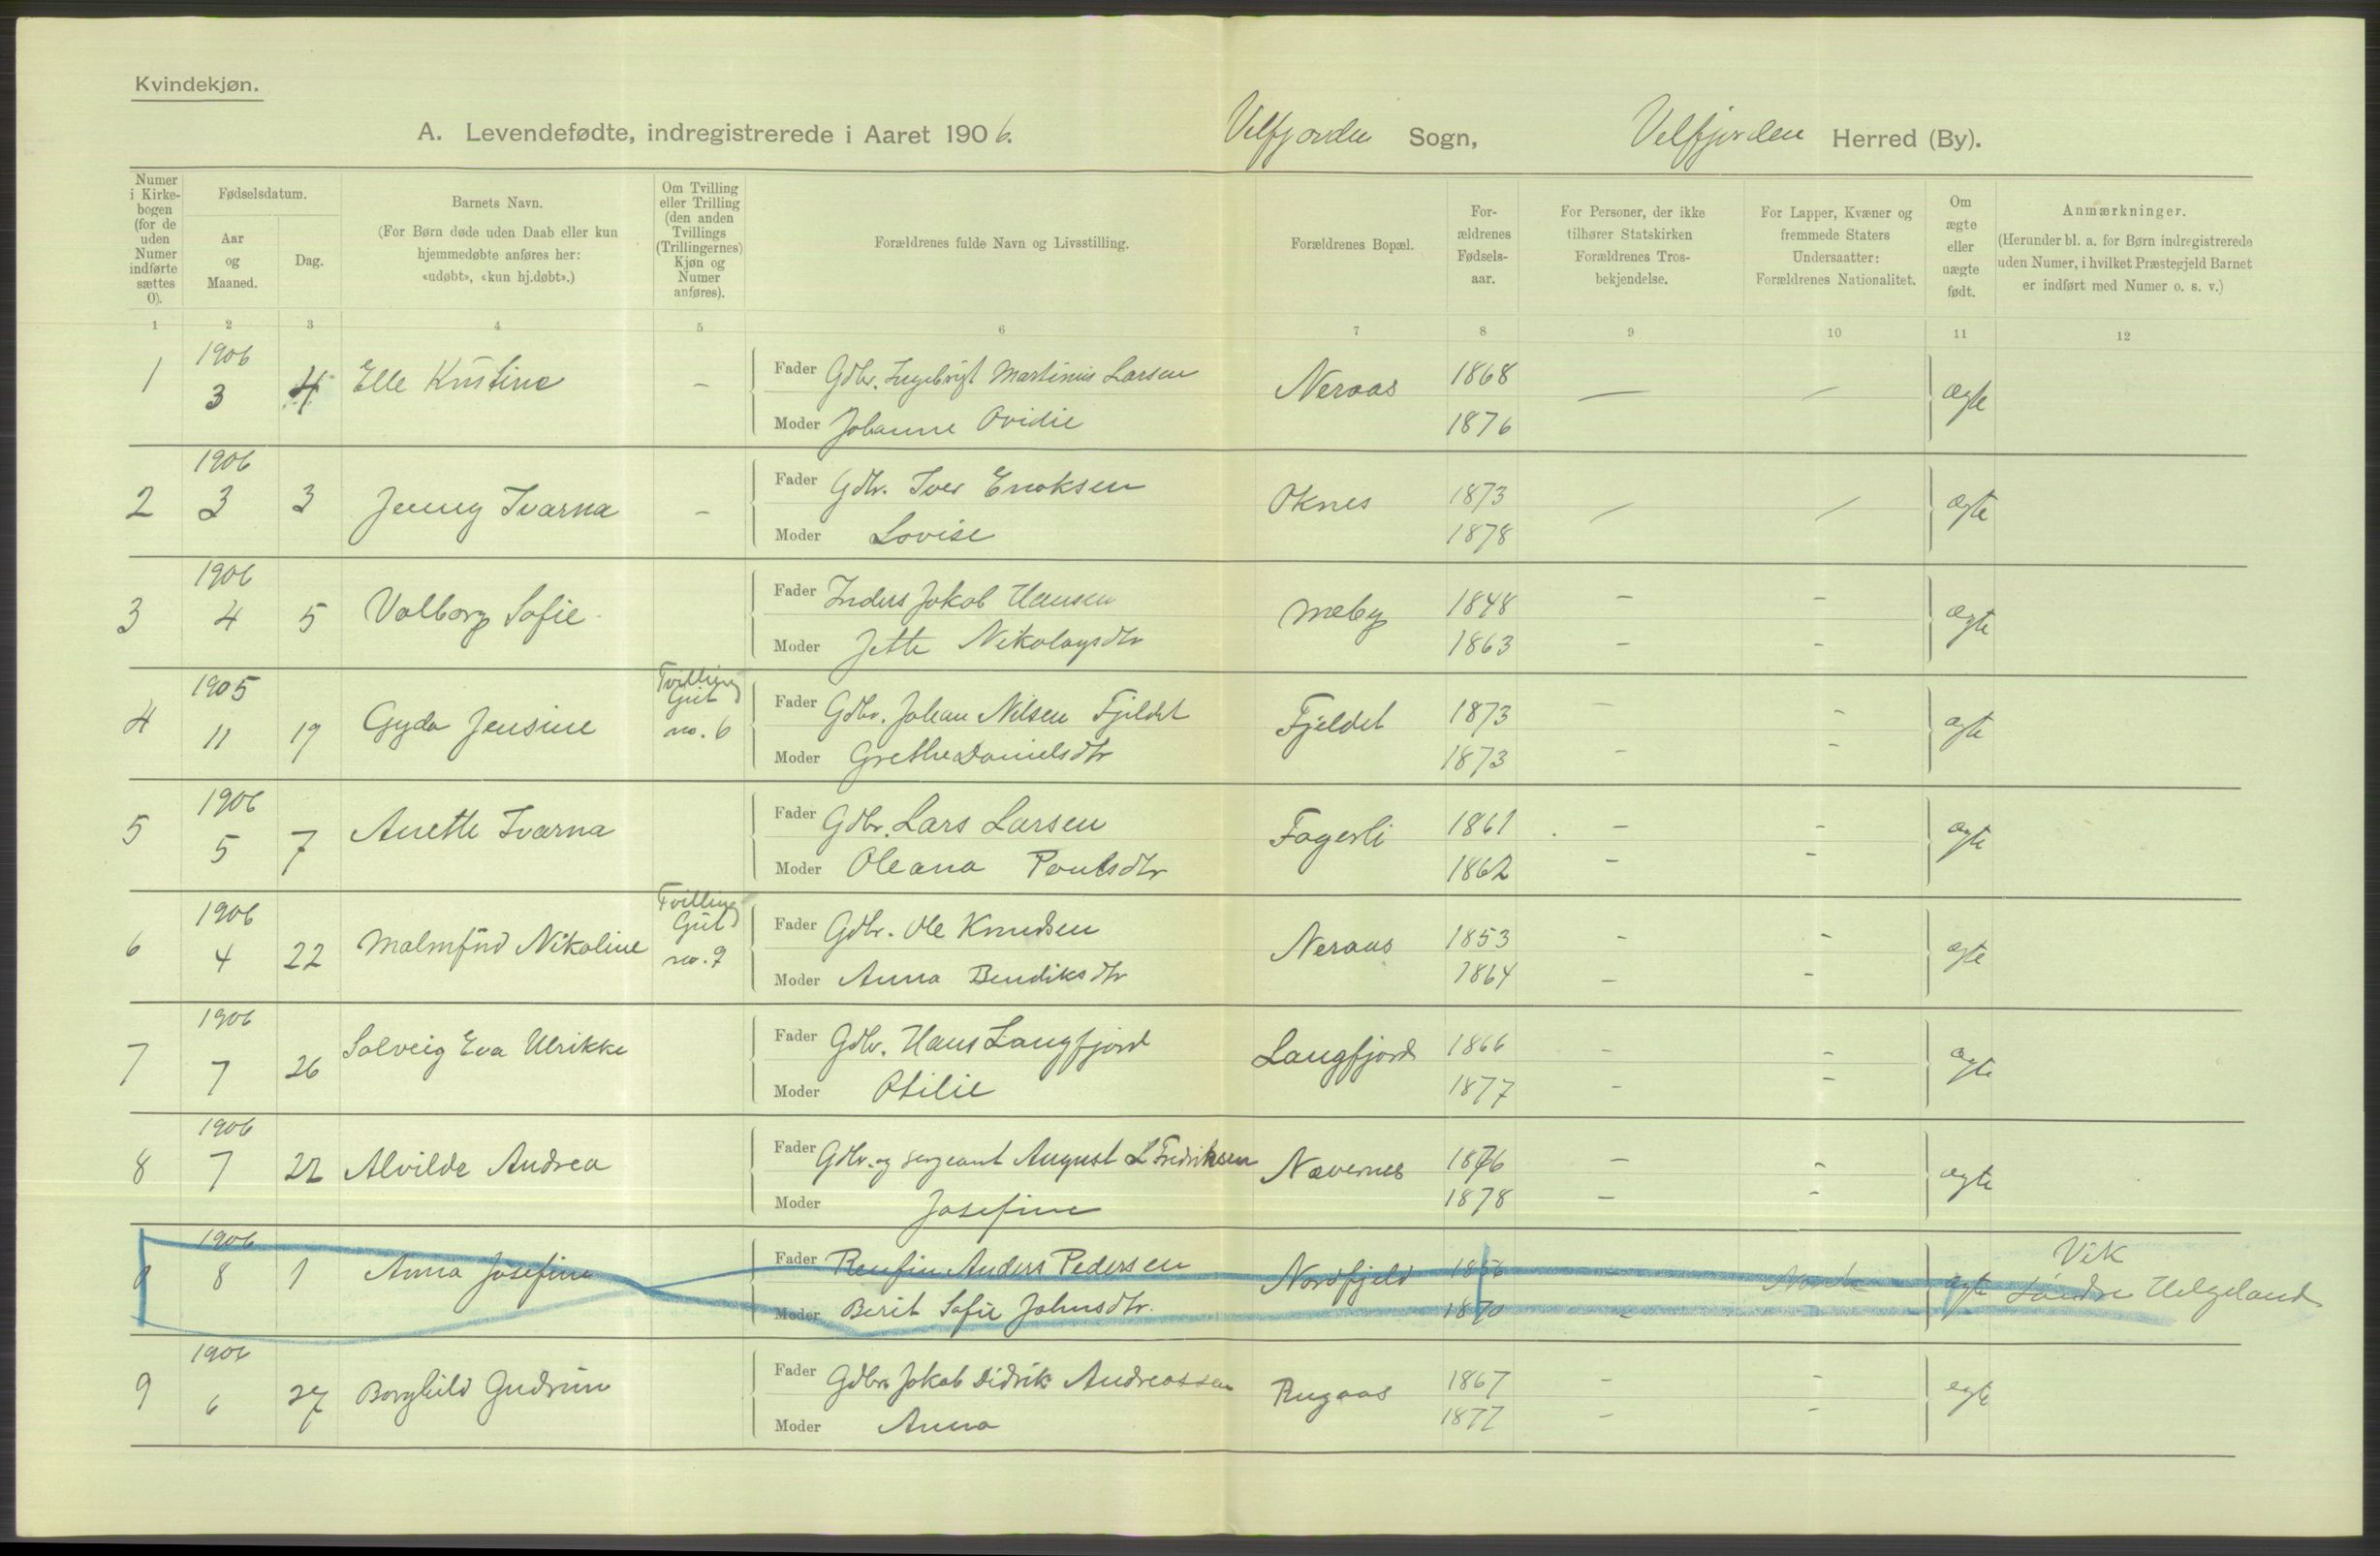 Kvindekjøn.
A. Levendefødte, indregistrerede i Aaret 1906. Velfjorden Sogn, Velfjorden Herred (By).
Numer i Kirkebogen (for de uden Numer indførte sættes 0).
Fødselsdatum.
Aar og Maaned.
Dag.
Barnets Navn.
(For Børn døde uden Daab eller kun hjemmedøbte anføres her: «udøbt», «kun hj.døbt».)
Om Tvilling eller Trilling (den anden Tvillings (Trillingernes) Kjøn og Numer anføres).
Forældrenes fulde Navn og Livsstilling.
Forældrenes Bopæl.
Forældrenes Fødselsaar.
For Personer, der ikke tilhører Statskirken Forældrenes Trosbekjendelse.
For Lapper, Kvæner og fremmede Staters Undersaatter: Forældrenes Nationalitet.
Om ægte eller uægte født.
Anmærkninger.
(Herunder bl. a. for Børn indregistrerede uden Numer, i hvilket Præstegjeld Barnet er indført med Numer o. s. v.)
1 2 3 4 5 6 7 8 9 10 11 12
1 1906 3 4 Elle Kristine – Fader Gdbr. Ingebrigt Martinus Larsen Neraas 1868 – – ægte
Moder Johanne Ovidie 1876
2 1906 3 3 Jenny Ivarna – Fader Gdbr. Iver Enoksen Oknes 1873 – – ægte
Moder Lovise 1878
3 1906 4 5 Valborg Sofie Fader Inders Jakob Hansen Mæby 1848 – – ægte
Moder Jette Nikolaysdtr 1863 – –
4 1905 11 19 Gyda Jensine Tvilling Gut no. 6 Fader Gdbr. Johan Nilsen Fjeldet Fjeldet 1873 – – ægte
Moder Grethe Danielsdtr 1873 – –
5 1906 5 7 Anette Ivarna Fader Gdbr. Lars Larsen Fagerli 1861 – – ægte
Moder Oleana Poulsdtr 1862 – –
6 1906 4 22 Malmfrid Nikoline Tvilling Gut no. 9 Fader Gdbr. Ole Knudsen Neraas 1853 – – ægte
Moder Anna Bendiksdtr 1864 – –
7 1906 7 26 Solveig Eva Ulrikke Fader Gdbr. Hans Langfjord Langfjord 1866 – – ægte
Moder Otilie 1877 – –
8 1906 7 22 Alvilde Andrea Fader Gdbr. og sergeant August L Fredriksen Nævernes 1876 – – ægte
Moder Josefine 1878 – –
1906 8 1 Anna Josefine Fader Renfin Anders Pedersen Nordfjeld ægte Vik Søndre Helgeland
Moder Berit Sofie Johnsdtr. 1870 –
9 1906 6 27 Borghild Gudrun Fader Gdbr. Jakob Didrik Andreassen Rugaas 1867 – – egte
Moder Anna 1877 – –